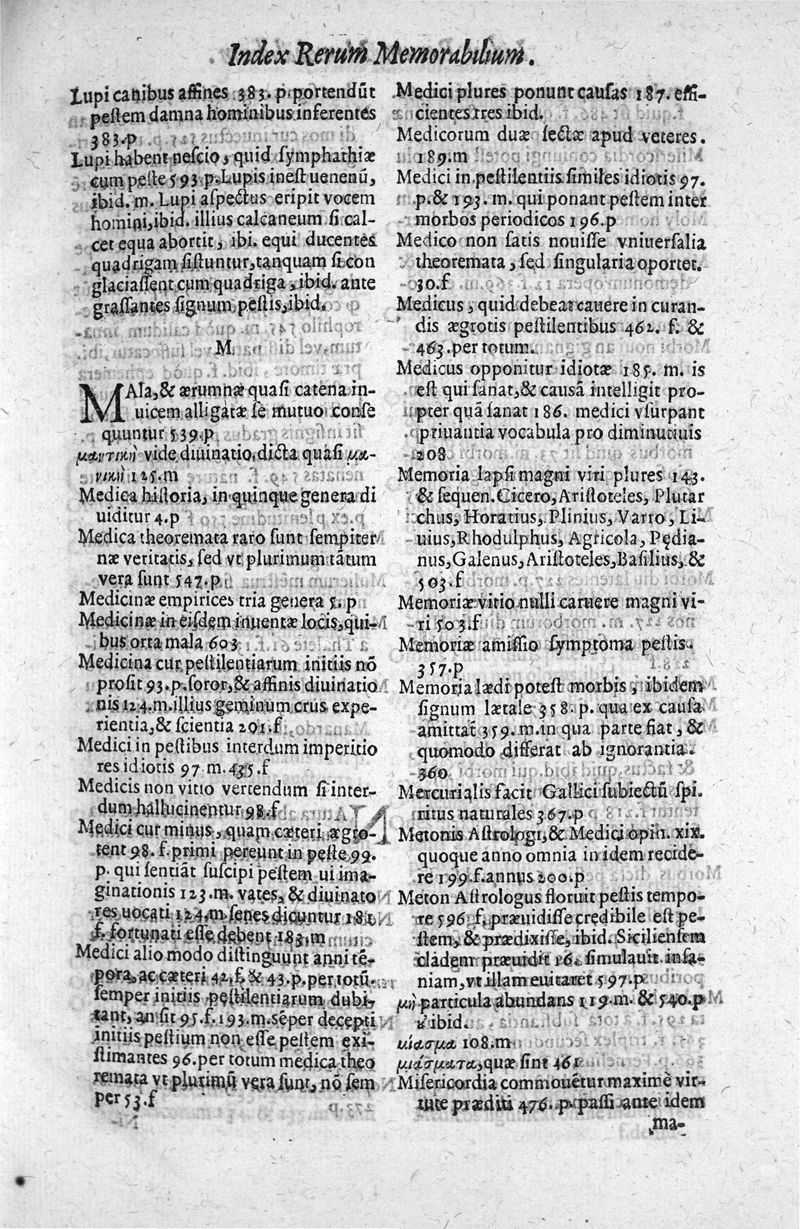 Index Rerum Memorabilium.
Lupi canibus affines 383. p. portendũt
peſtem damna hominibus inferentes
383.p
Lupi habent neſcio, quid ſymphathiæ
cum peſte 593 p. Lupis ineſt uenenũ,
ibid. m. Lupi aſpectus eripit vocem
homini, ibid. illius calcaneum ſi cal-
cet equa abortit, ibi. equi ducentes
quadrigam ſiſtuntur, tanquam ſi con
glaciaſſent cum quadriga, ibid. ante
graſſantes ſignum peſtis, ibid.
M.
MAla, & ærumnæ quaſi catena in-
uicem alligatæ ſe mutuo conſe
quuntur 539.p
μαντικὴ vide diuinatio, dicta quaſi μα-
νικὴ 125.m
Medica hiſtoria, in quinque genera di
uiditur 4.p
Medica theoremata raro ſunt ſempiter
næ veritatis, ſed vt plurimum tãtum
vera ſunt 547.p
Medicinæ empirices tria genera 5. p
Medicinæ in eiſdem inuentæ locis, qui-
bus orta mala 603
Medicina cur peſtilentiarum initiis nõ
proſit 93.p. ſoror, & affinis diuinatio
nis 124.m. illius geminum crus expe-
rientia, & ſcientia 201.f
Medici in peſtibus interdum imperitio
res idiotis 97 m. 435.f
Medicis non vitio vertendum ſi inter-
dum hallucinentur 98.f
Medici cur minus, quam cæteri ægro-
tent 98. f. primi pereunt in peſte 99.
p. qui ſentiãt ſuſcipi peſtem ui ima-
ginationis 123.m. vates, & diuinato
res uocati 124.m. ſenes dicuntur 181
f. fortunati eſſe debent 183.m
Medici alio modo diſtinguunt anni tẽ-
pora, ac cæteri 42.f. & 43.p. per totũ.
ſemper initiis peſtilentiarum dubi-
tant, an ſit 95.f. 193.m. ſẽper decepti
initiis peſtium non eſſe peſtem exi-
ſtimantes 96. per totum medica theo
remata vt plurimũ vera ſunt, nõ ſem
per 53.f
Medici plures ponunt cauſas 187. effi-
cientes tres ibid.
Medicorum duæ ſectæ apud veteres.
189.m
Medici in peſtilentiis ſimiles idiotis 97.
p. & 193. m. qui ponant peſtem inter
morbos periodicos 196.p
Medico non ſatis nouiſſe vniuerſalia
theoremata, ſed ſingularia oportet.
30.f
Medicus, quid debeat cauere in curan-
dis ægrotis peſtilentibus 462. f. &
463. per totum.
Medicus opponitur idiotæ 185. m. is
eſt qui ſanat, & cauſã intelligit pro-
pter quã ſanat 186. medici vſurpant
priuantia vocabula pro diminutiuis
208
Memoria lapſi magni viri plures 143.
& ſequen. Cicero, Ariſtoteles, Plutar
chus, Horatius, Plinius, Varro, Li-
uius, Rhodulphus, Agricola, Pędia-
nus, Galenus, Ariſtoteles, Baſilius, &
503.f
Memoriæ vitio nulli caruere magni vi-
ri 503.f
Memoriæ amiſſio ſymptoma peſtis.
357.p
Memoria lædi poteſt morbis, ibidem
ſignum lætale 358. p. qua ex cauſa
amittat 359. m. in qua parte fiat, &
quomodo differat ab ignorantia.
360.
Mercurialis facit Gallici ſubiectũ ſpi.
ritus naturales 367.p
Metonis Aſtrologi, & Medici opin. xix.
quoque anno omnia in idem recide-
re 199.f. annus 200.p
Meton Aſtrologus floruit peſtis tempo-
re 596. f. præuidiſſe credibile eſt pe-
ſtem, & prædixiſſe, ibid. Sicilienſem
cladem præuidit 16. ſimulauit inſa-
niam, vt illam euitaret 597.p
μὴ particula abundans 119.m. & 540.p
& ibid.
μίασμα 108.m
μιάσματα, quæ ſint 461
Miſericordia commouẽtur maximè vir-
tute præditi 476. p. paſſi ante idem
ma-